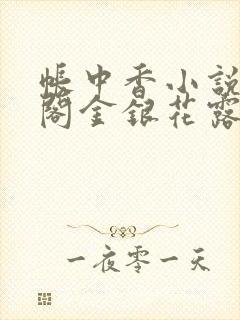 帳中香小說
閣金銀花露
一夜零一天